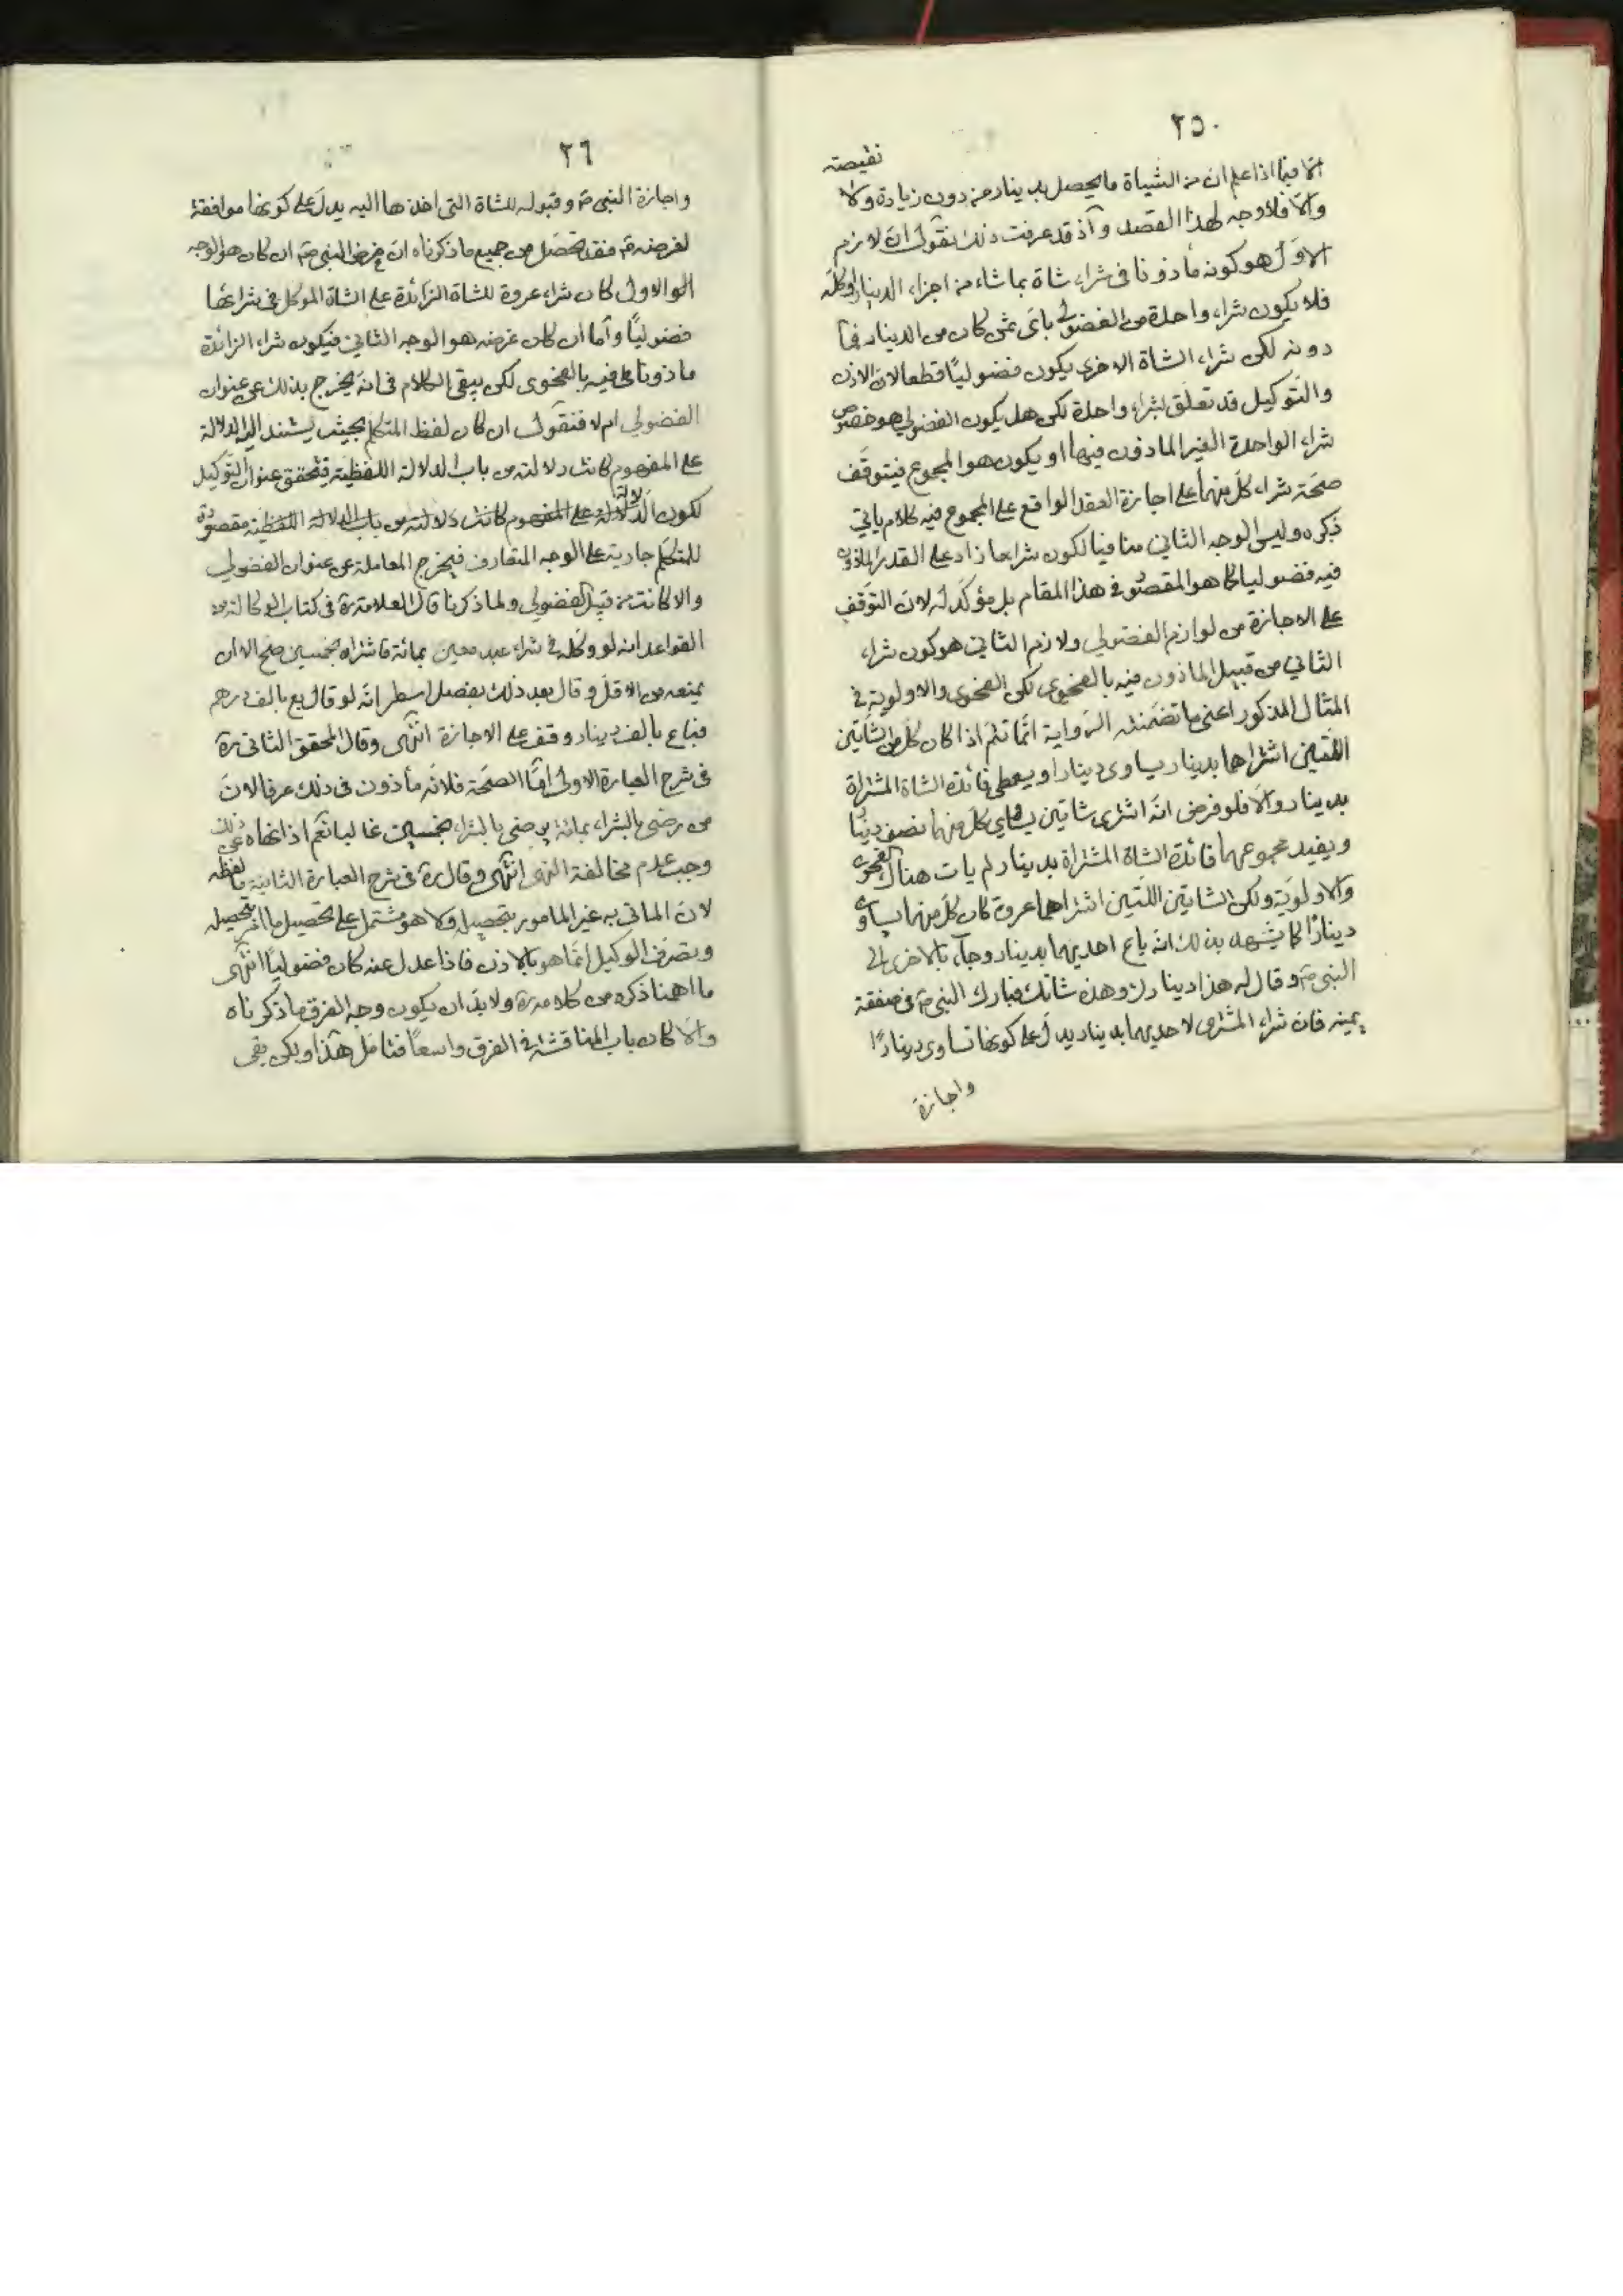 ٢٥٠
نقيصته
اما فيما اذا علم ان من الشياة ما يحصل بدينار من دون زيادة ولا
والا فلا وجه لهذا القصد وآذ قد عرفت ذلك نقول ان لازم
الاول هو كونه ماذونا فى شراء شاة بما شاء من اجزاء الدينار او كله
فلا يكون شراء واحدة من الفضولي باى ثمن كان من الدينار فما
دونه لكن شراء الشاة الاخرى يكون فضوليا قطعا لان الاذن
والتوكيل قد تعلق بشراء واحدة لكن هل يكون الفضولي هو خصوص
شراء الواحدة الغير الماذون فيها او يكون هو المجموع فيتوقف
صحة شراء كل منهما على اجازة العقد الواقع على المجموع فيه كلام ياتي
ذكره وليس الوجه الثاني منافيا لكون شراء ما زاد على القدر الماذون
فيه فضوليا كما هو المقصود في هذا المقام بل مؤكد له لان التوقف
على الاجازة من لوازم الفضولي ولازم الثاني هو كون شراء
الثاني من قبيل الماذون فيه بالفحوى لكن الفحوى والاولوية في
المثال المذكور اعنى ما تضمنته الرواية انما تتم اذا كان كل من الشاتين
اللتين اشتراهما بدينار يساوى دينارا ويعطى فائدة الشاة المشتراة
بدينار والا فلو فرض انه اشترى شاتين يساوي كل منهما نصف دينار
ويفيد مجموعهما فائدة الشاة المشتراة بدينار لم يات هناك الفحوى
والاولوية ولكن الشاتين اللتين اشتراهما عروة كان كل منهما يساوى
دينارا كما يشهد بذلك انه باع احديهما بدينار وجاء بالاخرى الى
النبى ص وقال له هذا دينارك وهذه شاتك فبارك النبى ص فى صفقة
يمينه فان شراء المشترى لاحديهما بدينار يدل على كونها تساوى دينارا
واجازة
٢٦
واجازة النبى ص وقبوله للشاة التى اخذها اليه يدل على كونها موافقة
لغرضه ص فقد تحصل من جميع ما ذكرناه ان غرض النبى ص ان كان هو الوجه
الاول كان شراء عروة للشاة الزائدة على الشاة الموكل فى شرائها
فضوليا وآما ان كان غرضه هو الوجه الثاني فيكون شراء الزائدة
ماذونا فيه بالفحوى لكن يبقى الكلام فى انه يخرج بذلك عن عنوان
الفضولي ام لا فنقول ان كان لفظ المتكلم بحيث يستند اليه الدلالة
على المفهوم كانت دلالته من باب الدلالة اللفظية فيتحقق عنوان التوكيل
لكون الدلالة على المفهوم كانت دلالته من باب الدلالة اللفظية مقصودة
للمتكلم جارية على الوجه المتعارف فيخرج المعاملة عن عنوان الفضولي
والا كانت من قبيل الفضولي ولما ذكرنا قال العلامة ره فى كتاب الوكالة من
القواعد انه لو وكله في شراء عبد معين بمائة فاشتراه بخمسين صح الا ان
يمنعه من الاقل وقال بعد ذلك بفصل اسطر انه لو قال بع بالف درهم
فباع بالف دينار وقف على الاجازة انتهى وقال المحقق الثانى ره
فى شرح العبارة الاولى امّا الصحة فلانه مأذون فى ذلك عرفا لان
من رضى بالشراء بمائة يرضى بالشراء بخمسين غالبا نعم اذا نهاه عن ذلك
وجب عدم مخالفة النهى انتهى وقال ره فى شرح العبارة الثانية ما لفظه
لان الماتى به غير المامور بتحصيله ولا هو مشتمل على تحصيل ما امر بتحصيله
وتصرف الوكيل انما هو بالاذن فاذا عدل عنه كان فضوليا انتهى
ما اهمنا ذكره من كلامه ره ولابد ان يكون وجه الفرق ما ذكرناه
والا كان باب المناقشة في الفرق واسعا فتامل هذا ولكن بقى